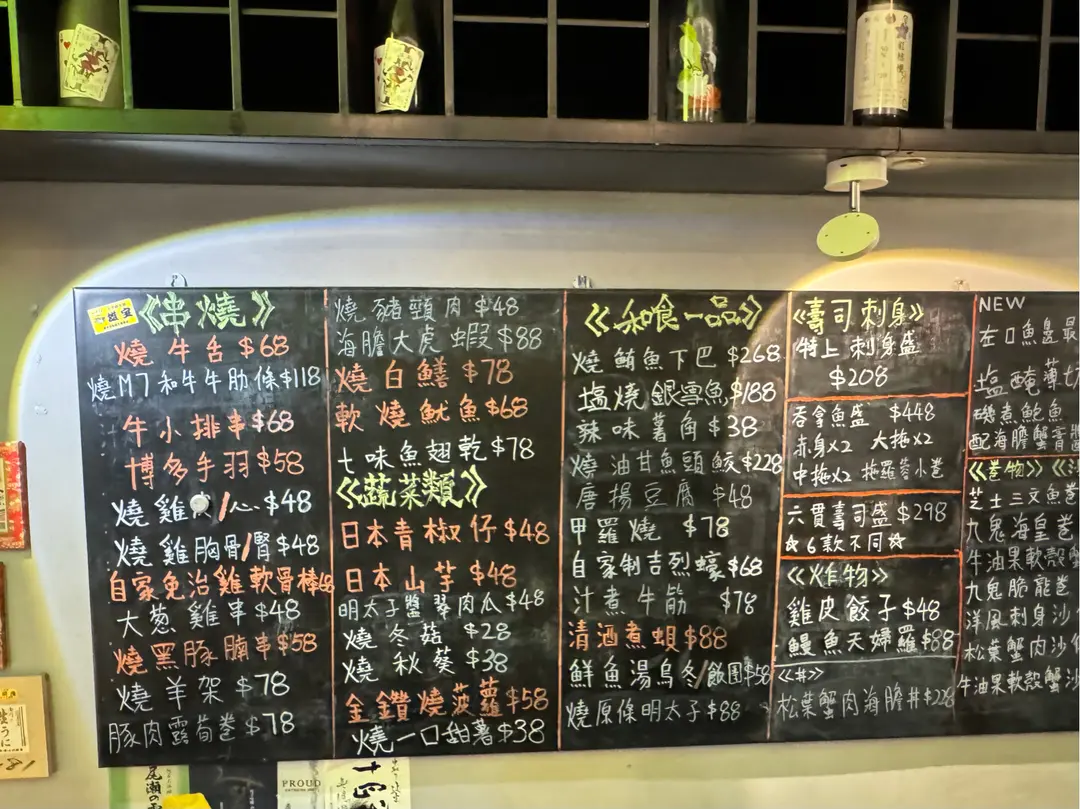 《串燒》
燒牛舌 $68
燒M7和牛牛肋條$118
牛小排串$68
博多手羽$58
燒雞肉/心 $48
燒雞胸骨/腎 $48
自家免治雞軟骨棒$68
大葱雞串$48
燒黑豚腩串$58
燒羊架 $78
豚肉露荀卷 $78
燒豬頸肉 $48
海膽大虎蝦 $88
燒白鱔 $78
軟燒魷魚$68
七味魚翅乾 $78
《蔬菜類》
日本青椒仔 $48
日本山芋 $48
明太子醬翠肉瓜 $48
燒冬菇 $28
燒秋葵 $38
金鑽燒菠蘿 $58
燒一口甜薯 $38
《和食一品》
燒鰤魚下巴 $268
塩燒銀雪魚 $188
辣味薯角 $38
燒油甘魚頭鮫 $228
唐揚豆腐 $48
甲羅燒 $78
自家制吉烈蠔 $68
汁煮牛筋 $78
清酒煮蜆 $88
鮮魚湯烏冬/飯團$58
燒原條明太子 $88
《壽司刺身》
特上刺身盛
$208
吞拿魚盛 $448
赤身x2 大拖x2
中拖x2 拖羅蓉小卷
六貫壽司盛 $298
☆6款不同☆
《炸物》
雞皮餃子 $48
鰻魚天婦羅 $88
《丼》
松葉蟹肉海膽丼 $228
NEW
左口魚邊
塩醃薄切
磯煮鮑魚
配海膽蟹膏醬
《卷物》
芝士三文魚卷
九鬼海皇卷
牛油果軟殼蟹
九鬼脆龍卷
洋風刺身沙
松葉蟹肉沙
牛油果軟殼蟹沙
尾瀬の
PROUD
十四
うに